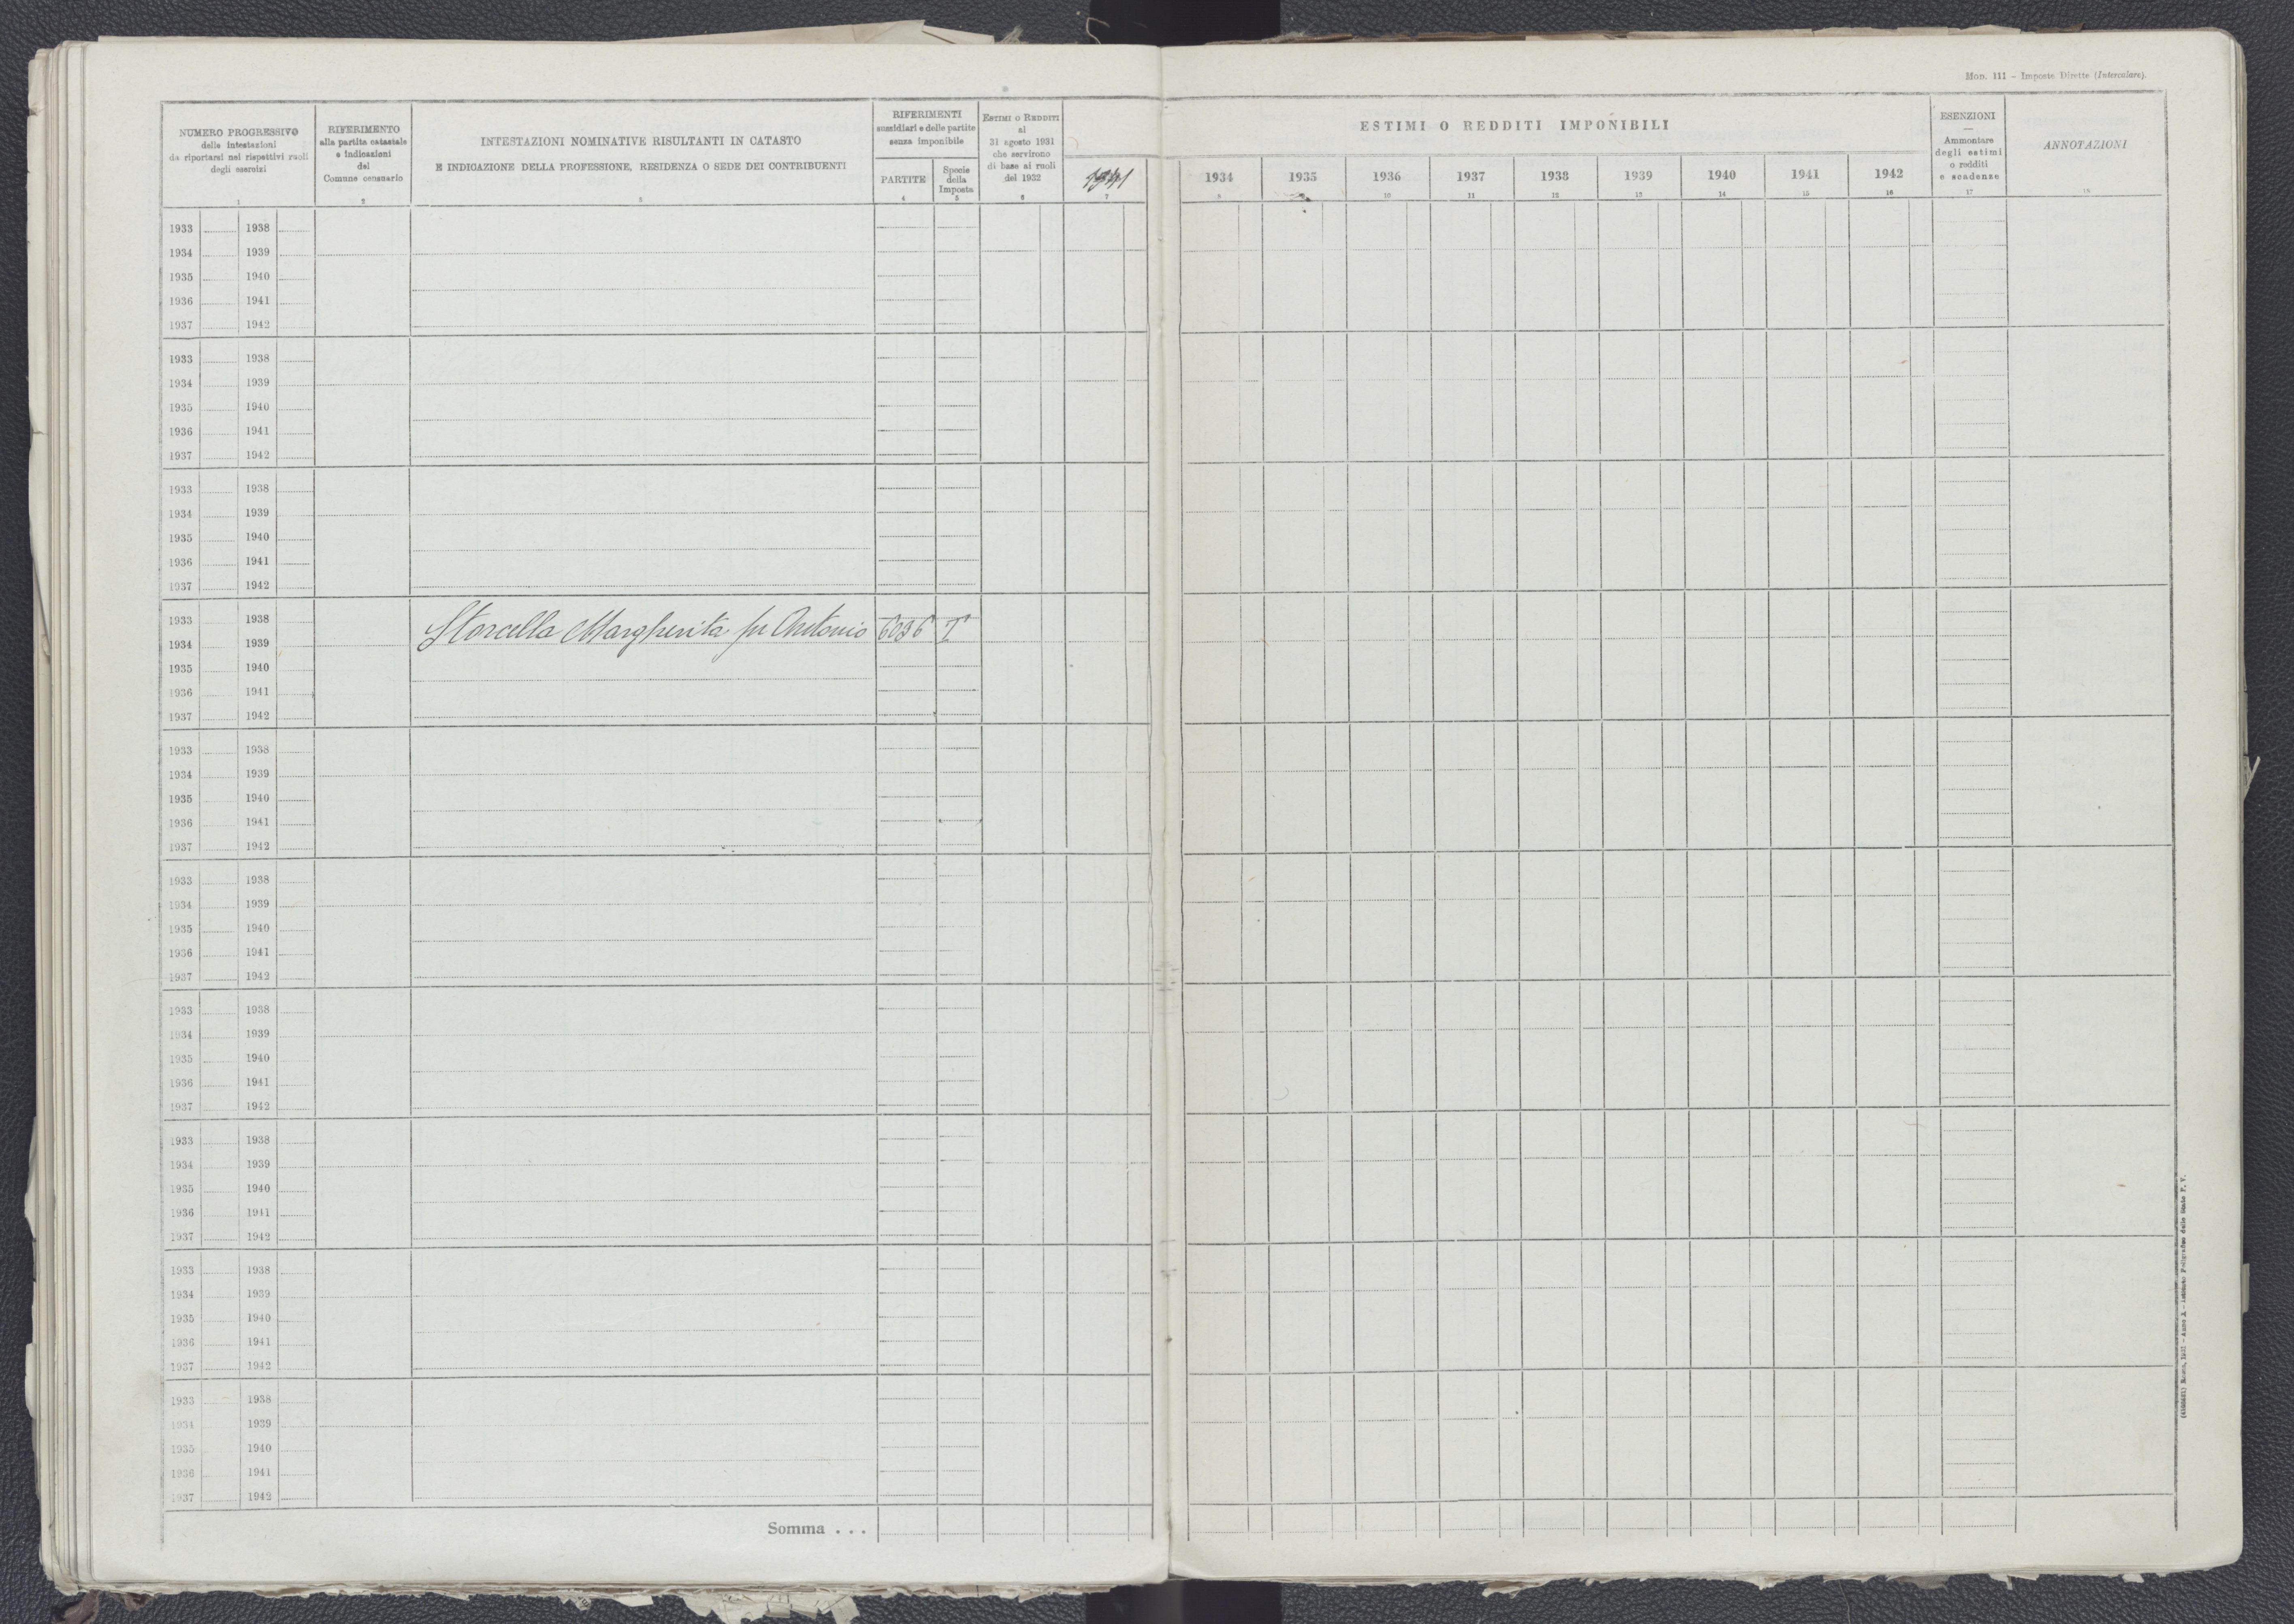 Mod. 111 - Imposte Dirette (Intercalare).
NUMERO PROGRESSIVO
delle intestazioni
da riportarsi nei rispettivi ruoli
degli esercizi
1
RIFERIMENTO
alla partita catastale
e indicazioni
del
Comune censuario
2
INTESTAZIONI NOMINATIVE RISULTANTI IN CATASTO
E INDICAZIONE DELLA PROFESSIONE, RESIDENZA O SEDE DEI CONTRIBUENTI
3
RIFERIMENTI
sussidiari e delle partite
senza imponibile
PARTITE
4
Specie
della
Imposta
5
Estimi o Redditi
al
31 agosto 1931
che servirono
di base ai ruoli
del 1932
6
1941
7
ESTIMI O REDDITI IMPONIBILI
1934 1935 1936 1937 1938 1939 1940 1941 1942
10 11 12 13 14 15 16
ESENZIONI
—
Ammontare
degli estimi
o redditi
e scadenze
17
ANNOTAZIONI
18
1933 1938
1934 1939
1935 1940
1936 1941
1937 1942
1933 1938
1934 1939
1935 1940
1936 1941
1937 1942
1933 1938
1934 1939
1935 1940
1936 1941
1937 1942
1933 1938 Storcella Margherita fu Antonio 6036 T
1934 1939
1935 1940
1936 1941
1937 1942
1933 1938
1934 1939
1935 1940
1936 1941
1937 1942
1933 1938
1934 1939
1935 1940
1936 1941
1937 1942
1933 1938
1934 1939
1935 1940
1936 1941
1937 1942
1933 1938
1934 1939
1935 1940
1936 1941
1937 1942
1933 1938
1934 1939
1935 1940
1936 1941
1937 1942
1933 1938
1934 1939
1935 1940
1936 1941
1937 1942
Somma . . .
Roma, 1931 - Anno X - Istituto Poligrafico dello Stato P. V.